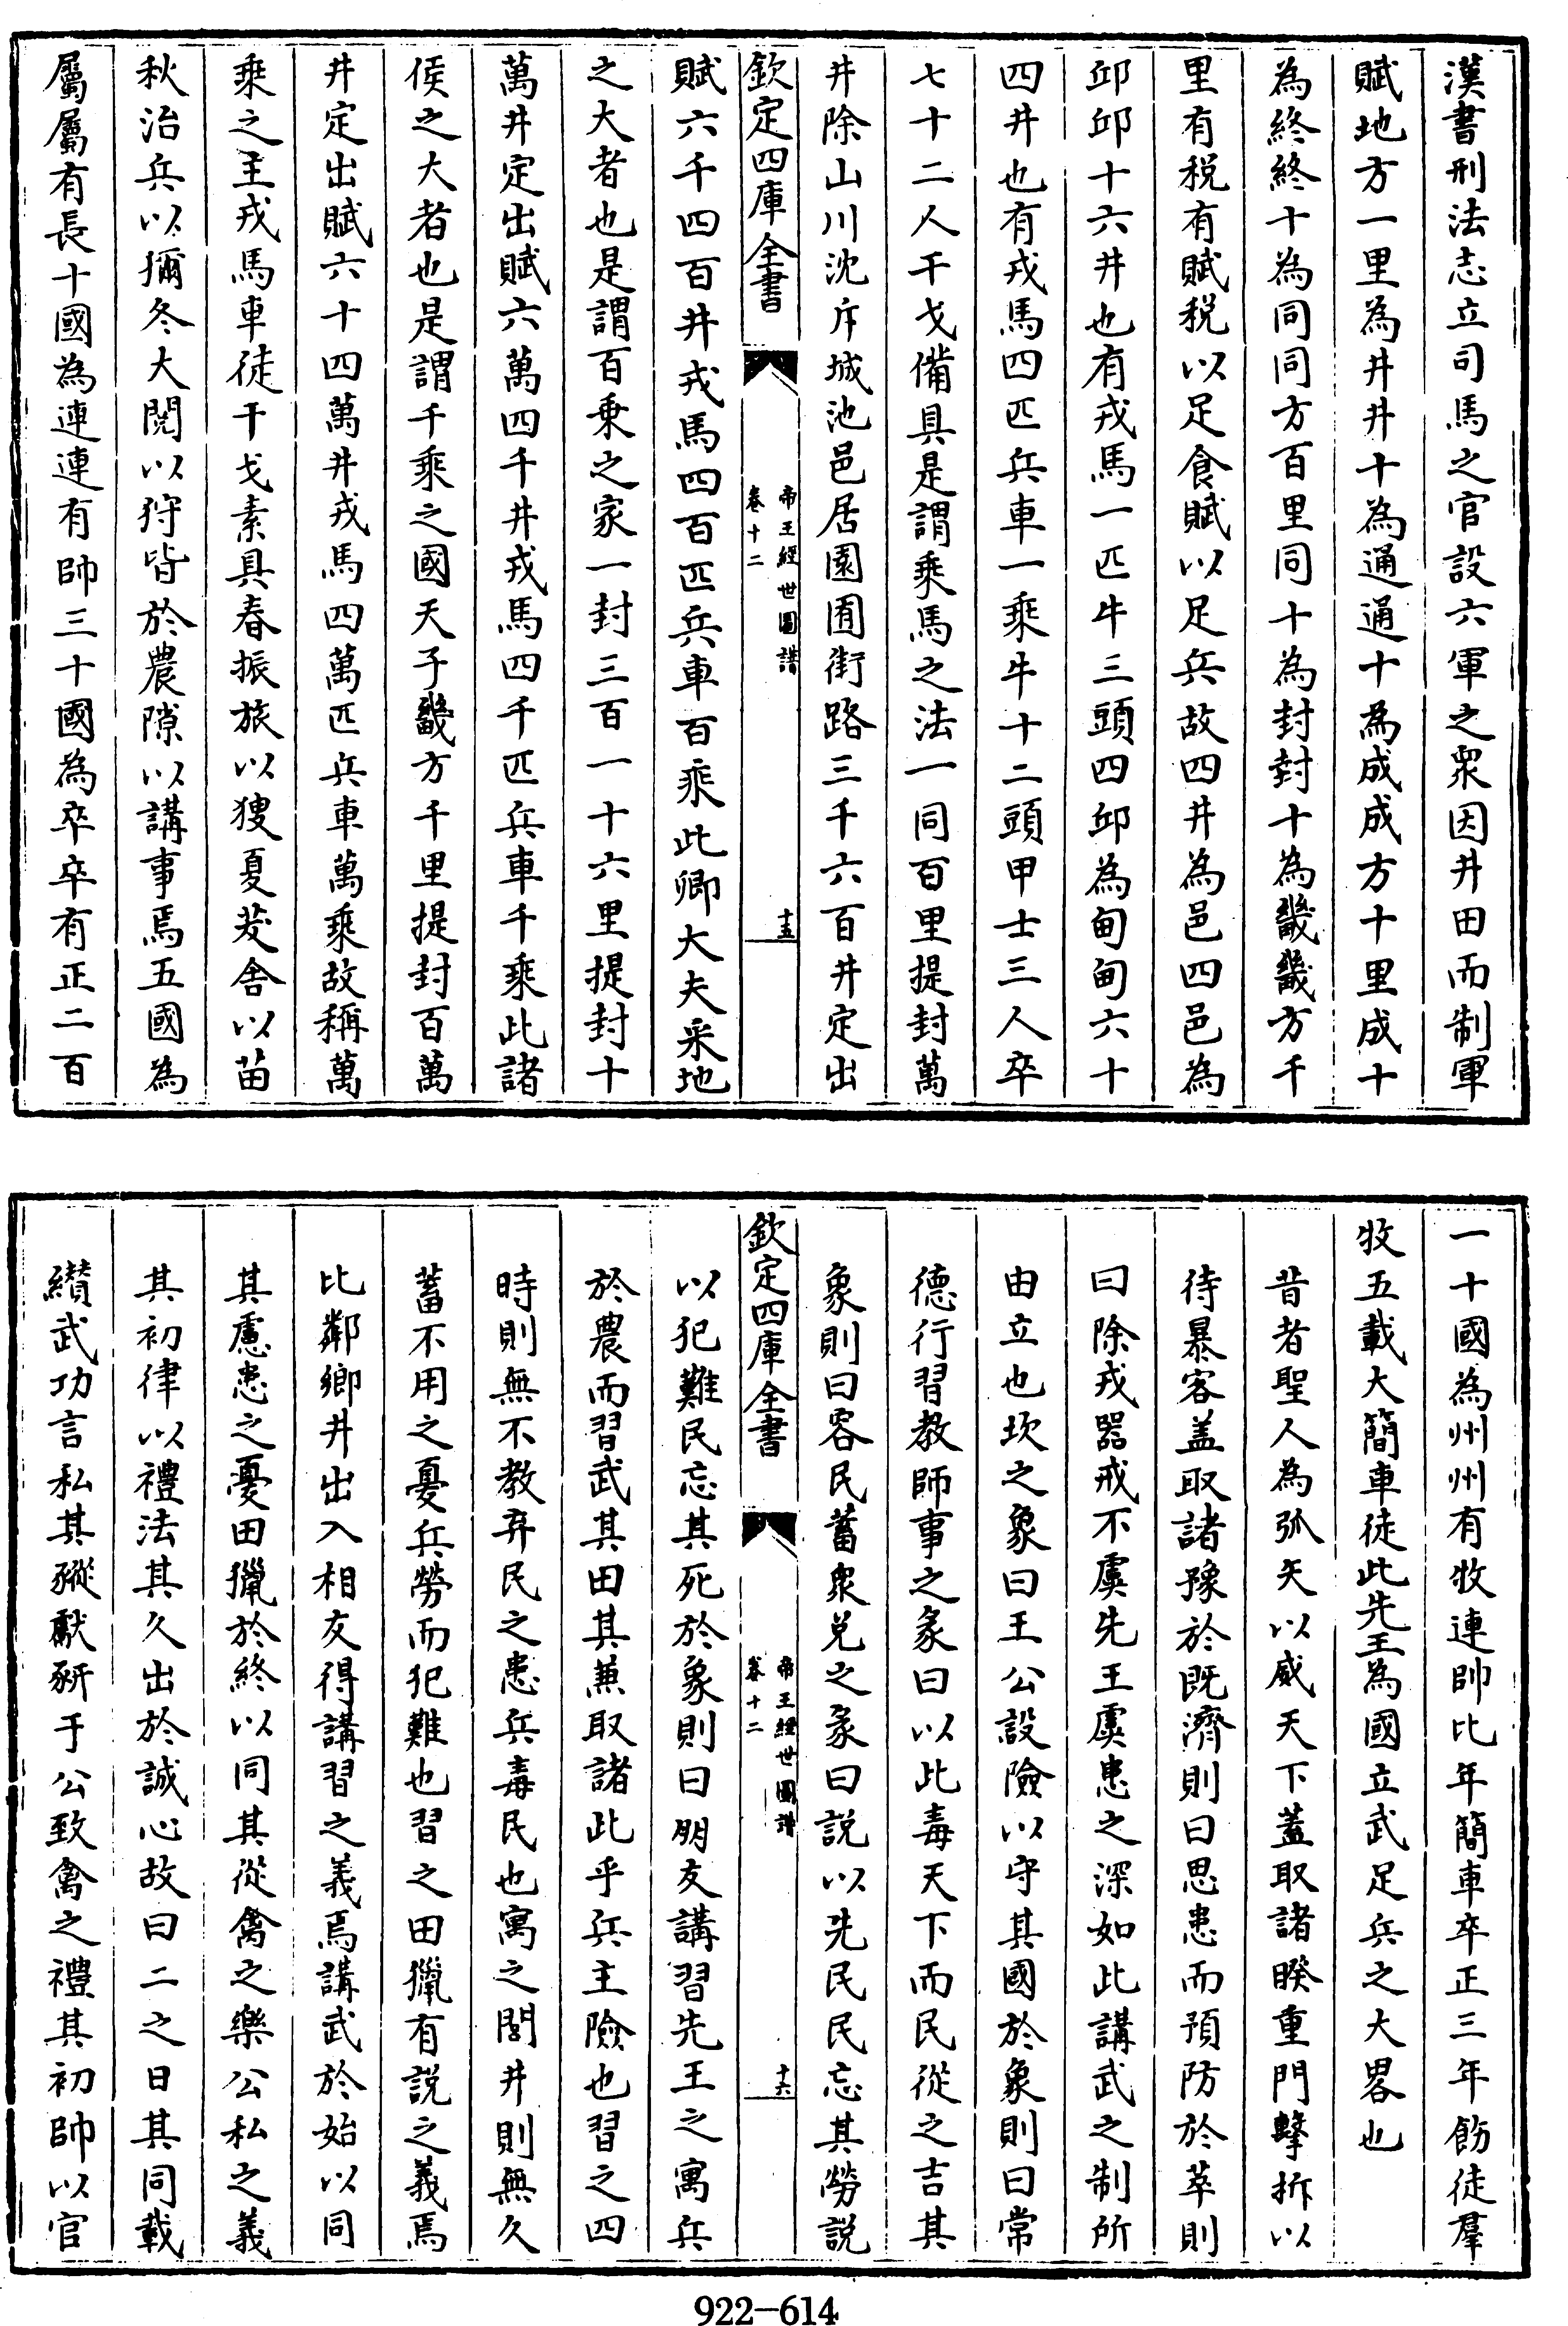 漢書刑法志立司馬之官設六軍之衆因井田而制軍
賦地方一里為井井十為通通十為成成方十里成十
為終終十為同同方百里同十為封封十為畿畿方千
里有税有賦税以足食賦以足兵故四井為邑四邑為
邱邱十六井也有戎馬一匹牛三頭四邱為甸甸六十
四井也有戎馬四匹兵車一乘牛十二頭甲士三人卒
七十二人干戈備具是謂乘馬之法一同百里提封萬
井除山川沈斥城池邑居園囿街路三千六百井定出
欽定四庫全書
帝王經世圖譜
卷十二
十五
賦六千四百井戎馬四百匹兵車百乘此卿大夫采地
之大者也是謂百乘之家一封三百一十六里提封十
萬井定出賦六萬四千井戎馬四千匹兵車千乘此諸
侯之大者也是謂千乘之國天子畿方千里提封百萬
井定出賦六十四萬井戎馬四萬匹兵車萬乘故稱萬
乘之主戎馬車徒干戈素具春振旅以獀夏茇舍以苗
秋治兵以獮冬大閱以狩皆於農隙以講事焉五國為
屬屬有長十國為連連有帥三十國為卒卒有正二百
一十國為州州有牧連帥比年簡車卒正三年飭徒羣
牧五載大簡車徒此先王為國立武足兵之大畧也
昔者聖人為弧矢以威天下蓋取諸睽重門擊拆以
待暴客盖取諸豫於既濟則曰思患而預防於萃則
曰除戎器戒不虞先王虞患之深如此講武之制所
由立也坎之彖曰王公設險以守其國於象則曰常
德行習教師事之彖曰以此毒天下而民從之吉其
象則曰容民蓄衆兌之彖曰説以先民民忘其勞説
欽定四庫全書
帝王經世圖譜
卷十二
十六
以犯難民忘其死於象則曰朋友講習先王之寓兵
於農而習武其田其兼取諸此乎兵主險也習之四
時則無不教弃民之患兵毒民也寓之閭井則無久
蓄不用之憂兵勞而犯難也習之田獵有説之義焉
比鄰鄉井出入相友得講習之義焉講武於始以同
其慮患之憂田獵於終以同其從禽之樂公私之義
其初律以禮法其久出於誠心故曰二之日其同載
纘武功言私其豵獻豜于公致禽之禮其初帥以官
922-614